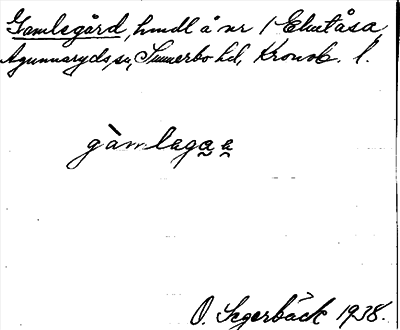 Gamlegård, hmdl å nr 1 Eketåsa
Agunnaryds sn, Sunnerbo hd, Kronob. l.
gàmlaga̰a̰
O. Segerbäck 1938.